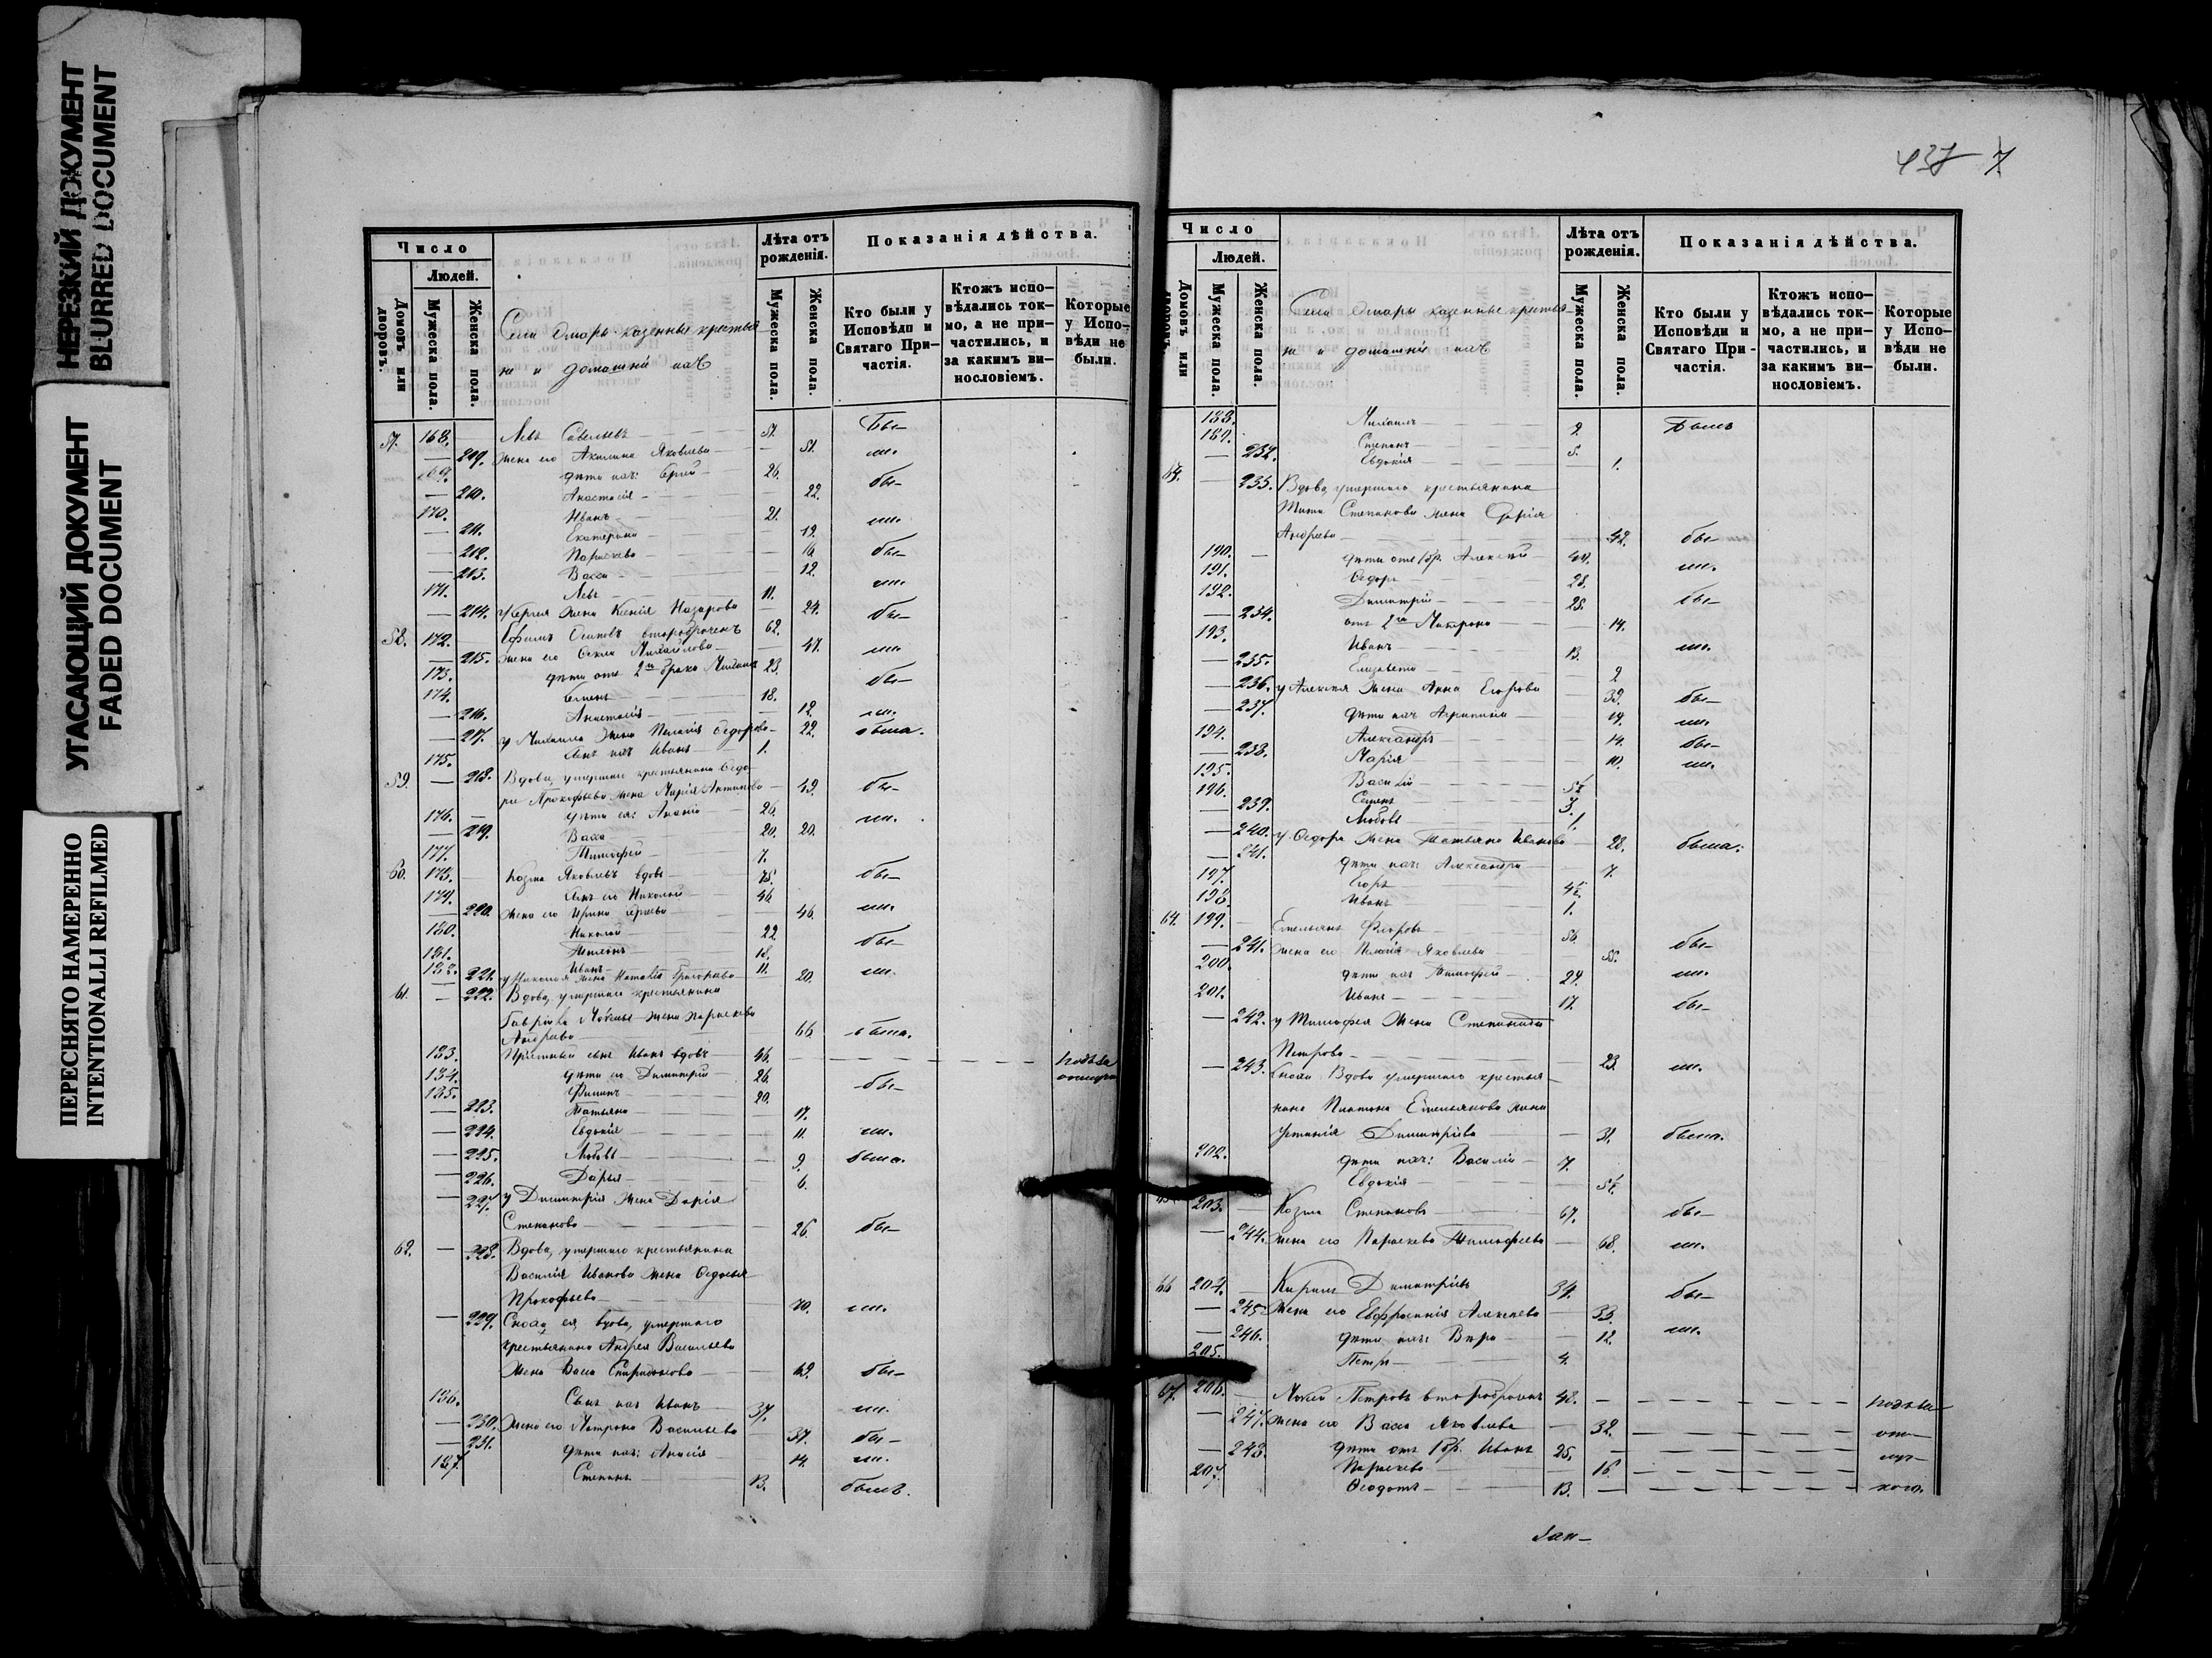 НЕРЕЗКИЙ ДОКУМЕНТ
BLURRED DOCUMENT
УГАСАЮЩИЙ ДОКУМЕНТ
FADED DOCUMENT
ПЕРЕСНЯТО НАМЕРЕННО
INTENTIONALLI REFILMED
Число
Людей.
Домовъ или дворовъ.
Мужеска пола.
Женска пола.
казенные крестья
не и домашні ихъ
Лѣта отъ рожденія.
Мужеска пола.
Женска пола.
Показанія дѣйства.
Кто были у Исповѣди и Святаго При-частія.
Ктожъ испо-вѣдались ток-мо, а не при-частились, и за какимъ ви-нословіемъ.
Которые у Испо-вѣди не были.
57. 168. Левъ Савельевъ 51. бы-
209. жена его Акилина Яковлева 51. ли.
169. дѣти ихъ: 26. бы-
210. Анастасія 22.
170. Иванъ 21. ли.
211. Екатерина 19.
212. Параскева 16. бы-
213. Васса 12.
171. Левъ 11. ли.
214. жена Ксенія Назарова 24. бы-
58. 172. Ефимъ Осиповъ второбраченъ 62.
215. жена его Фекла Михайлова 47. ли.
173. дѣти отъ 2го брака Михаилъ 23. бы-
174. 18.
216. Анастасія 12. ли.
217. у Михаила жена Пелагія Федорова 22. была.
175. сынъ ихъ Иванъ 1.
59. 218. Вдова, умершаго крестьянина Федо-
ра Прокофьева жена Марія Антипова 49. бы-
176. дѣти ея: Ананій 26. ли.
219. Васса 20. 20.
177. Тимофей 7.
60. 178. Козма Яковлевъ вдовъ 75. бы-
179. сынъ его Николай 46
220. жена его Ирина 46. ли.
180. Николай 22 бы-
181. 18.
182. Иванъ 11.
221. у Николая жена Наталія Григорьева 20. ли.
61. 222. Вдова, умершаго крестьянина
Гавріила жена Параскева
Андреева 66 была.
183. Пріемный сынъ Иванъ вдовъ 46.
184. дѣти его Димитрій 26. бы-
185. Филипъ 20.
223. Татьяна 17.
224. Евдокія 11. ли.
225. Любовь 9. была.
226. Дарья 6.
227. у Димитрія жена Дарія
Степанова 26. бы-
62. 228. Вдова, умершаго крестьянина
Василія Иванова жена Федосья
Прокофьева 70. ли.
229. Сноха ея, вдова, умершаго
крестьянина Андрея Васильева
жена Васса Спиридонова 62. бы-
186. Сынъ ихъ Иванъ 37. ли.
230. жена его Матрона Васильева 37. бы-
231. дѣти ихъ: Анисія 14. ли.
187. Степанъ 13. былъ.
437 7
Число
Людей.
Домовъ или дворовъ.
Мужеска пола.
Женска пола.
казенные крестья-
не и домашніе ихъ
Лѣта отъ рожденія.
Мужеска пола.
Женска пола.
Показанія дѣйства.
Кто были у Исповѣди и Святаго При-частія.
Ктожъ испо-вѣдались ток-мо, а не при-частились, и за какимъ ви-нословіемъ.
Которые у Испо-вѣди не были.
188. Михаилъ 9. былъ
189. Степанъ 5.
232. Евдокія 1.
63. 233. Вдова, умершаго крестьянина
Тита Степанова жена
Андреева 49. бы-
190. дѣти отъ 1 бр. Алексѣй 40. ли.
191. Федоръ 28.
192. Димитрій 25. бы-
234. отъ 2го Матрона 14.
193. Иванъ 13. ли.
235. Елизавета 9
236. у Алексѣя жена Анна Егорова 39. бы-
237. дѣти ихъ Агрипина 19. ли.
194. Александръ 14. бы-
238. Марія 10. ли.
195. Василій
196. Семенъ 3.
239. Любовь 1.
240. у Федора жена Татьяна Иванова 28. была.
241. дѣти ихъ: Александра 7.
197. Егоръ
198. Иванъ 1.
64. 199. Емельянъ Флоровъ 56. бы-
241. жена его Пелагія Яковлева 55.
200. дѣти ихъ Тимофей 24. ли.
201. Иванъ 17. бы-
242. у Тимофея жена Степанида
Петрова 23. ли.
243. Сноха вдова умершаго крестья-
нина Платона Емельянова жена
Устинія Димитріева 31. была.
202. дѣти ихъ: Василій 7.
Евдокія
203. Козма Степановъ 67. бы-
244. жена его Параскева Тимофеева 68. ли.
66 204. Кирилъ Димитріевъ 34. бы-
245. жена его Евфросинія Алексѣева 33.
246. дѣти ихъ: Вѣра 12. ли.
205. Петръ 4.
67. 206. Мокей Петровъ второбраченъ 48.
247. жена его Васса Яковлева 32.
248. дѣти отъ 1 бр. Иванъ 25.
Параскева 16.
207. Феодотъ 13.